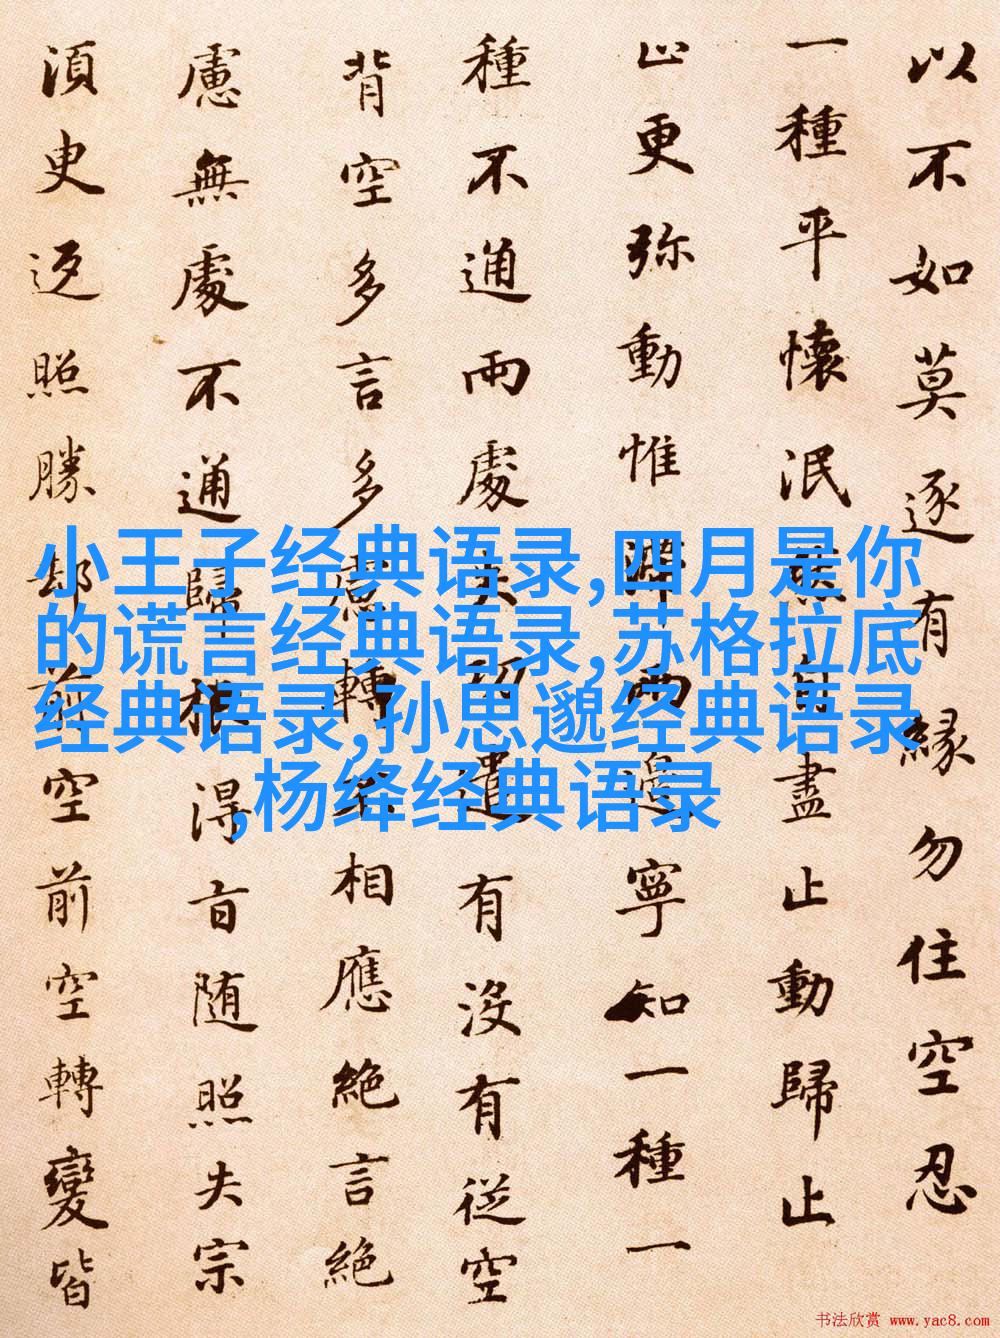 以不如莫逐有緣勿住空忍
一種平懷泯然自盡止動歸止
止更弥動惟滯兩邊寧知一種一
種不通兩處失功遣有没有従空
背空多言多慮轉不相應絶言絶
慮無處不通歸根得旨随照失宗
須臾返照勝却前空前空轉變皆
小王子经典语录,四月是你
的谎言经典语录,苏格拉底
经典语录,孙思邈经典语录
,杨绛经典语录
书法欣赏 www.yac8.com